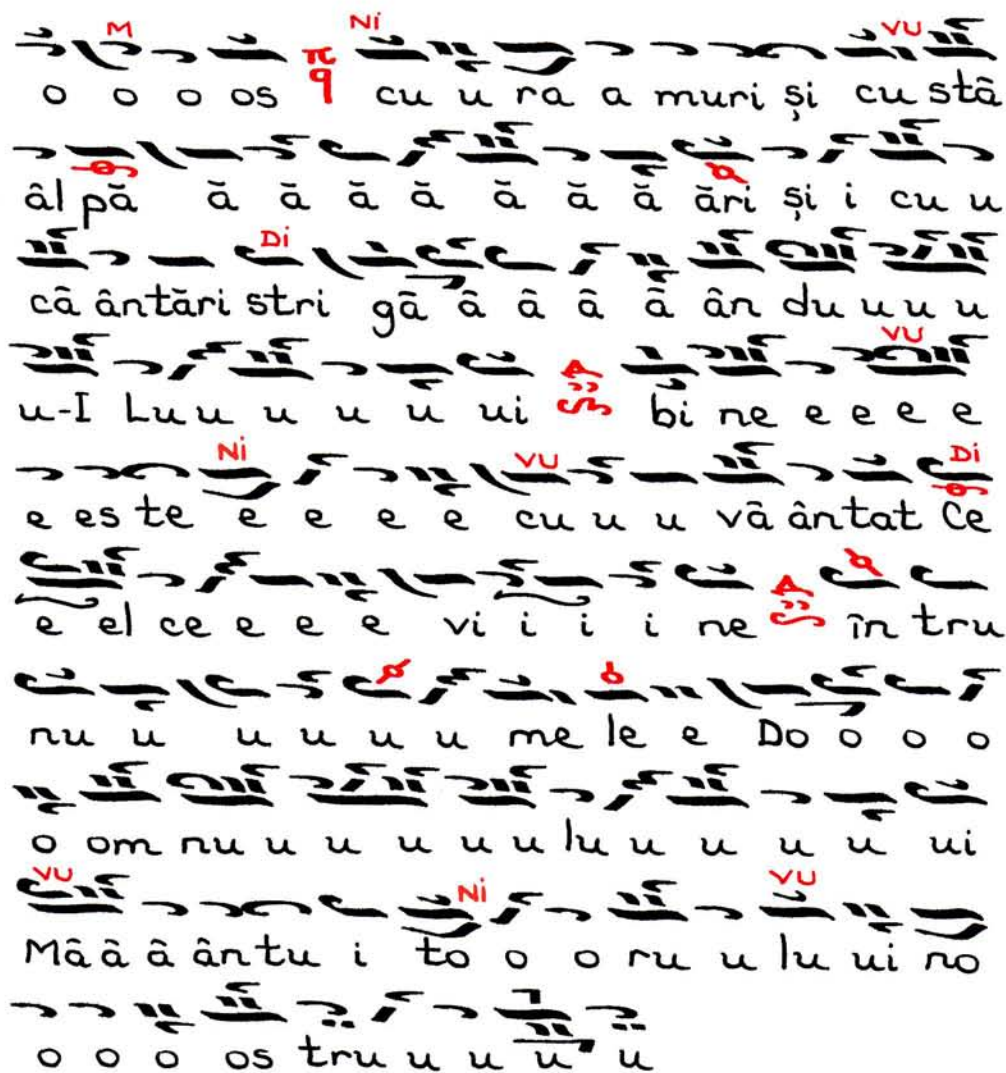 M Ni VU
o o o os π q cu u ra a muri și cu stâ
âl pă ă ă ă ă ă ă ă ări și i cu u
Di
câ ântări stri gâ â â â â ân du u u u
VU
u-I Lu u u u u ui bi ne e e e e
Ni VU Di
e es te e e e e cu u u vâ ântat Ce
e el ce e e e vi i i i ne în tru
nu u u u u u me le e Do o o o
o om nu u u u u u lu u u u u ui
VU Ni VU
Mâ â â ântu i to o o ru u lu ui no
o o o os tru u u u u